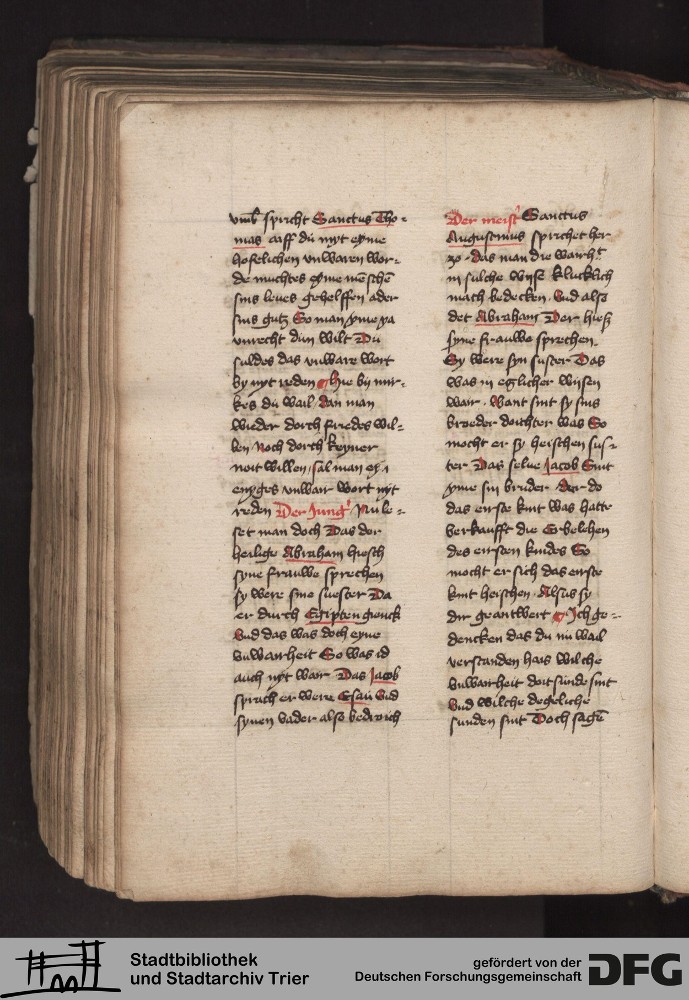 vmb spricht Sanctus Tho-
mas aiff du nyt eyme
hofelichen vnwaren wor-
de muchtes eyme menschē
sins leues gehelffen ader
sins gutz So man yme ya
vnrecht dün wilt Du
suldes das vnware wort
by nyt reden Hie by mir-
kes dü wail dan man
wieder dorch friedes wil-
len Noch dorch keyner
noit willen sal man ey
enyges vnwair wort nyt
reden Der Jung' Nu le-
set man doch Das der
heilige Abraham hiesch
syne frauwe sprechen
sy were sine suester Da
er durch Egipten gienck
Vnd das was doch eyne
vnwairheit So was id
auch nyt wair Das Jacob
sprach er were Esaü Vnd
synen vader also bedroich
Der meist' Sanctus
Augustinus sprichet her
zo das man die wairh't
in sulche wyse klucklich
mach bedecken Vnd also
det Abraham Der hiesz
syne frauwe sprechen
Sy were syn suster Das
was in eglicher wysen
wair Want sint sy sins
broeder doichter was So
mocht er sy heischen sus-
ter Das selue Jacob Sint
yme sin bruder der do
das eirste kint was hatte
verkaufft die Erbelchen
des eirsten kindes So
mocht er sich das eirste
kint heischen Alsus sy
dir geantwert Ich ge-
dencken das du nü wail
verstanden hais wilche
vnwairheit doitsunde sint
Vnd wilche degeliche
sunden sint Doch sagē
Stadtbibliothek
und Stadtarchiv Trier
gefördert von der
Deutschen Forschungsgemeinschaft
DFG